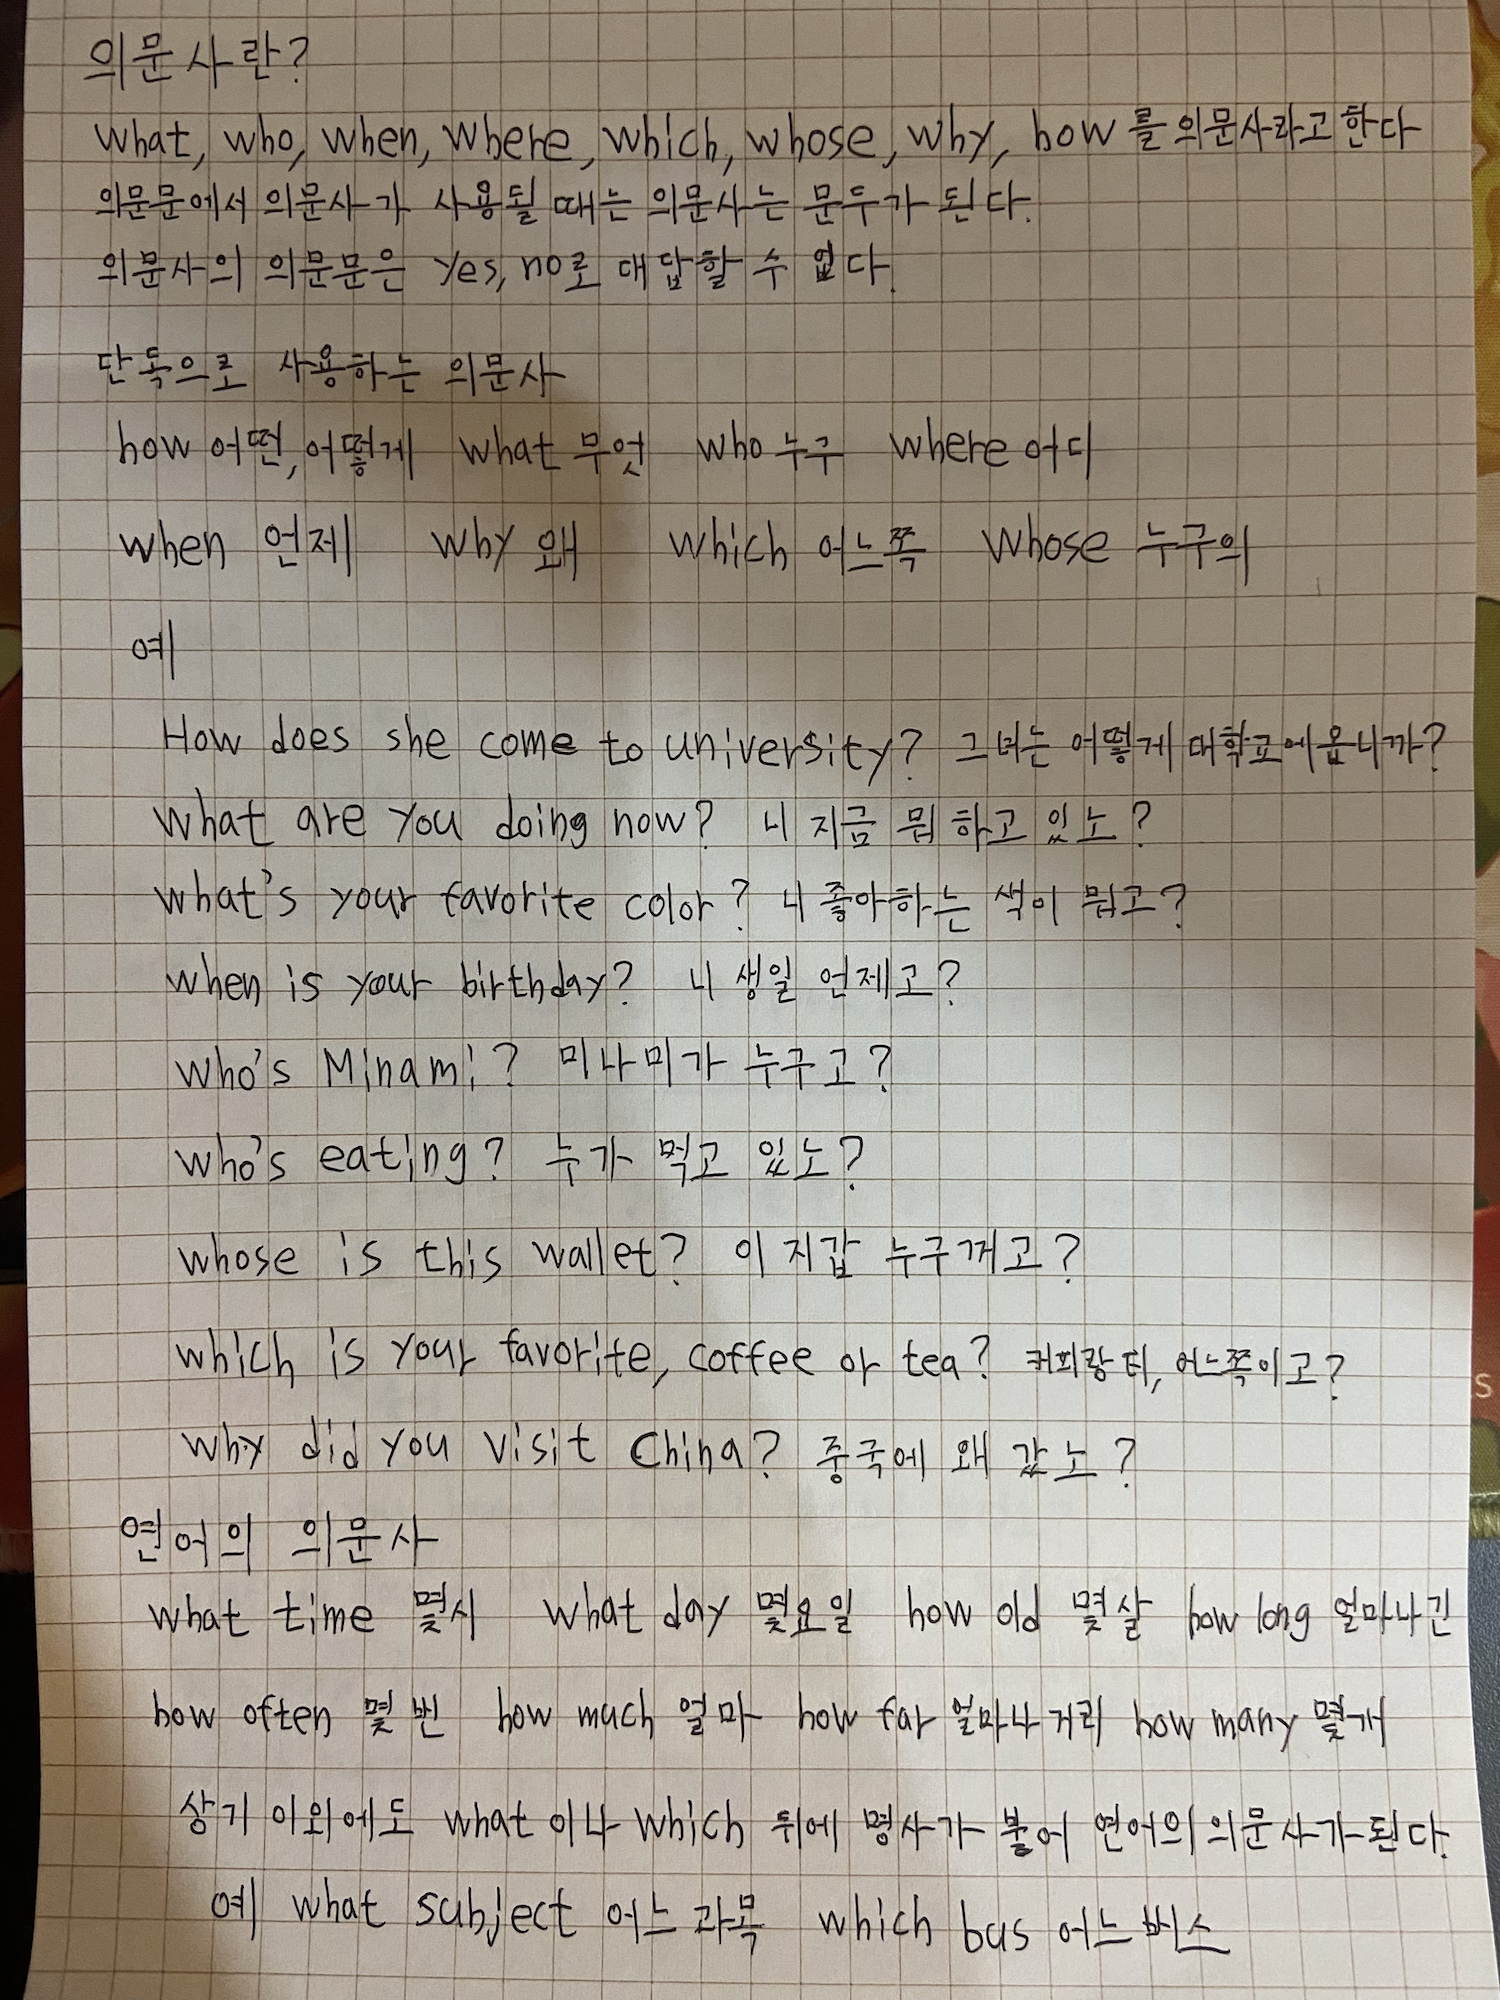 의문사란?
what, who, when, where, which, whose, why, how 를 의문사라고 한다
의문문에서 의문사가 사용될 때는 의문사는 문두가 된다.
의문사의 의문문은 yes, no로 대답할 수 없다.
단독으로 사용하는 의문사
how 어떤, 어떻게 what 무엇 who 누구 where 어디
when 언제 why 왜 which 어느쪽 whose 누구의
예
How does she come to university? 그녀는 어떻게 대학교에 옵니까?
what are you doing now? 니 지금 뭐 하고 있노?
what's your favorite color? 니 좋아하는 색이 뭡고?
when is your birthday? 니 생일 언제고?
who's Minami? 미나미가 누구고?
who's eating? 누가 먹고 있노?
whose is this wallet? 이 지갑 누구꺼고?
which is your favorite, coffee or tea? 커피랑 티, 어느쪽이고?
why did you visit China? 중국에 왜 갔노?
연어의 의문사
what time 몇시 what day 몇요일 how old 몇살 how long 얼마나 긴
how often 몇 번 how much 얼마 how far 얼마나 거리 how many 몇개
상기 이외에도 what 이나 which 뒤에 명사가 붙어 연어의 의문사가 된다.
예 what subject 어느 과목 which bus 어느 버스